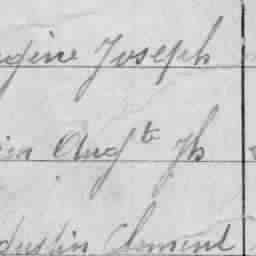 gine Joseph
ien Aug^te Jh
dustin Clement